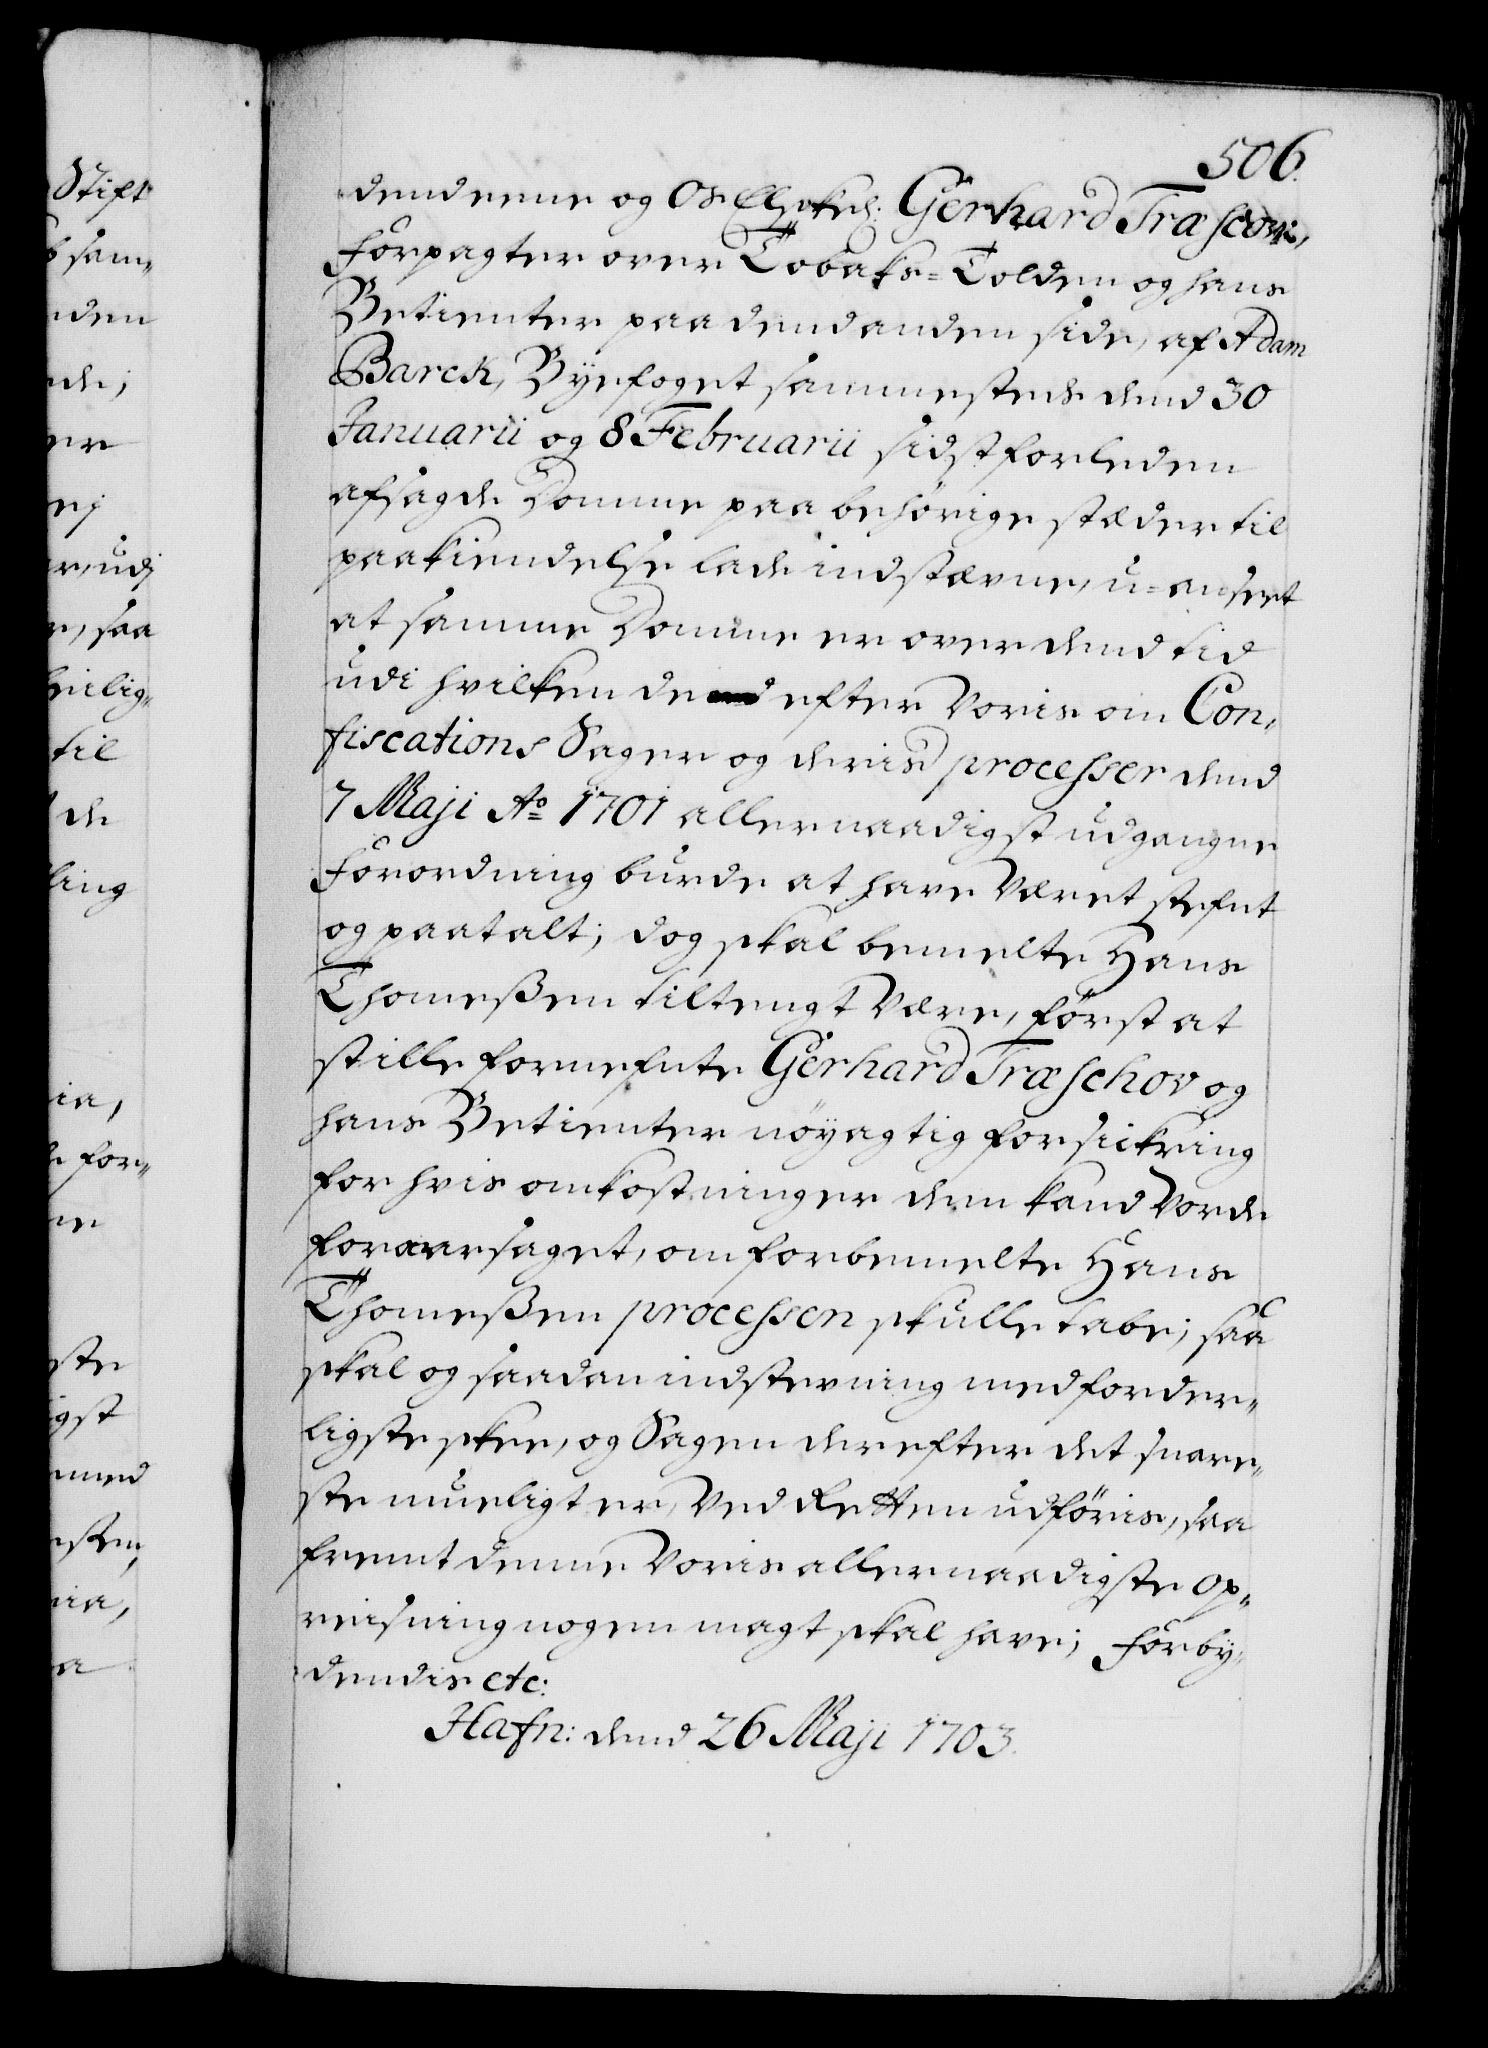 506.
Stift
sam-
nden
ej
udj
saa
til
de
ling
nia,
for-
ne
ste
igst
med
nia,
a
dend eene og Os Elskel: Gerhard Træschov,
Forpagter over Tobaks-Tolden og hans
Betienter paa dend anden side, af Adam
Barck, Byefoget sammesteds dend 30
Januarii og 8 Februarii sidstforleden
afsagde Domme paa behörige stæder til
paakiendelse lade indstævne, u-anseet
at samme Domme er over dend tid
udi hvilken de efter Voris om Con-
fiscations Sager og deris processer dend
7 Maji Ao 1701 allernaadigst udgangne
Forordning burde at have Været stefnt
og paatalt; dog skal bemelte Hans
Thomeßen tiltengt Være, först at
stille fornefnte Gerhard Træschov og
hans Betienter nöyagtig forsickring
for hvis omkostninger dem kand Vorde
foraarsaget, om forbemelte Hans
Thomeßen processen skulle tabe; saa
skal og saadan indstevning med forder-
ligste skee, og Sagen derefter det snare-
ste mueligt er, Ved Retten udföris, saa
fremt denne Voris allernaadigste op-
reisning nogen magt skal have; Forby-
dendis etc:
Hafn: dend 26 Maji 1703.